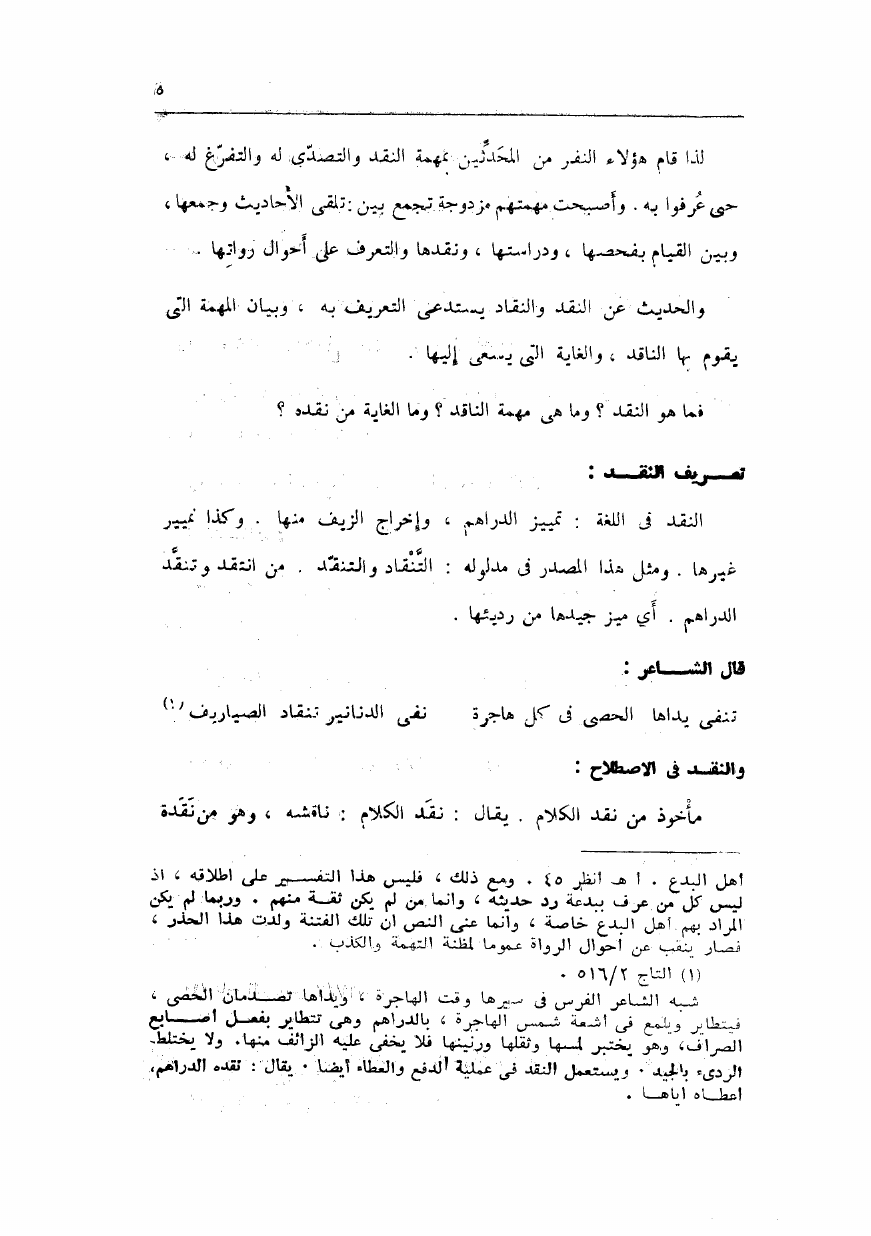 ٥
لذا قام هؤلاء النفر من المحَدِّثين بمهمة النقد والتصدّى له والتفرّغ له ،
حتى عُرفوا به . وأصبحت مهمتهم مزدوجة تجمع بين : تلقى الأحاديث وجمعها ،
وبين القيام بفحصها ، ودراستها ، ونقدها والتعرف على أحوال رواتها ..
والحديث عن النقد والنقاد يستدعى التعريف به ، وبيان المهمة التى
يقوم بها الناقد ، والغاية التى يسعى إليها .
فما هو النقد ؟ وما هى مهمة الناقد ؟ وما الغاية من نقده ؟
تعريف النقد :
النقد فى اللغة : تمييز الدراهم ، وإخراج الزيف منها . وكذا تمييز
غيرها . ومثل هذا المصدر فى مدلوله : التَّنْقاد والتنقّد . من انتقد وتنقَّد
الدراهم . أي ميز جيدها من رديئها .
قال الشاعر :
تنفى يداها الحصى فى كل هاجرة نفى الدنانير تنقاد الصياريف (١)
والنقد فى الاصطلاح :
مأخوذ من نقد الكلام . يقال : نقَد الكلام : ناقشه ، وهو من نَقَدة
أهل البدع . ا هـ انظر ٤٥ . ومع ذلك ، فليس هذا التفسير على اطلاقه ، اذ
ليس كل من عرف ببدعة رد حديثه ، وانما من لم يكن ثقة منهم . وربما لم يكن
المراد بهم أهل البدع خاصة ، وانما عنى النص ان تلك الفتنة ولدت هذا الحذر ،
فصار ينقب عن أحوال الرواة عموما لمظنة التهمة والكذب .
(١) التاج ٥١٦/٢ .
شبه الشاعر الفرس فى سيرها وقت الهاجرة ، ويداها تصدمان الحصى ،
فيتطاير ويلمع فى أشعة شمس الهاجرة ، بالدراهم وهى تتطاير بفعل أصابع
الصراف، وهو يختبر لمسها وثقلها ورنينها فلا يخفى عليه الزائف منها. ولا يختلط
الردىء بالجيد . ويستعمل النقد فى عملية الدفع والعطاء أيضا . يقال : نقده الدراهم،
أعطاه اياها .